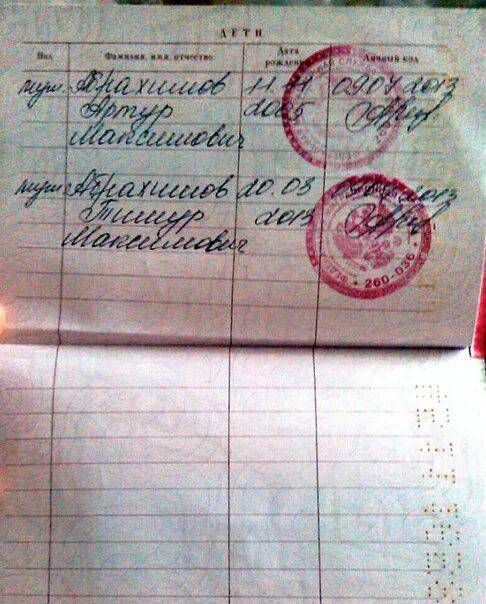 ДЕТИ
Пол Фамилия, имя, отчество Дата рождения Личный код
муж. Абрахимов 11. 2005 09.07.2013
Артур
Максимович
муж. Абрахимов 20.03 2013
Тимур 2013
Максимович
260-036